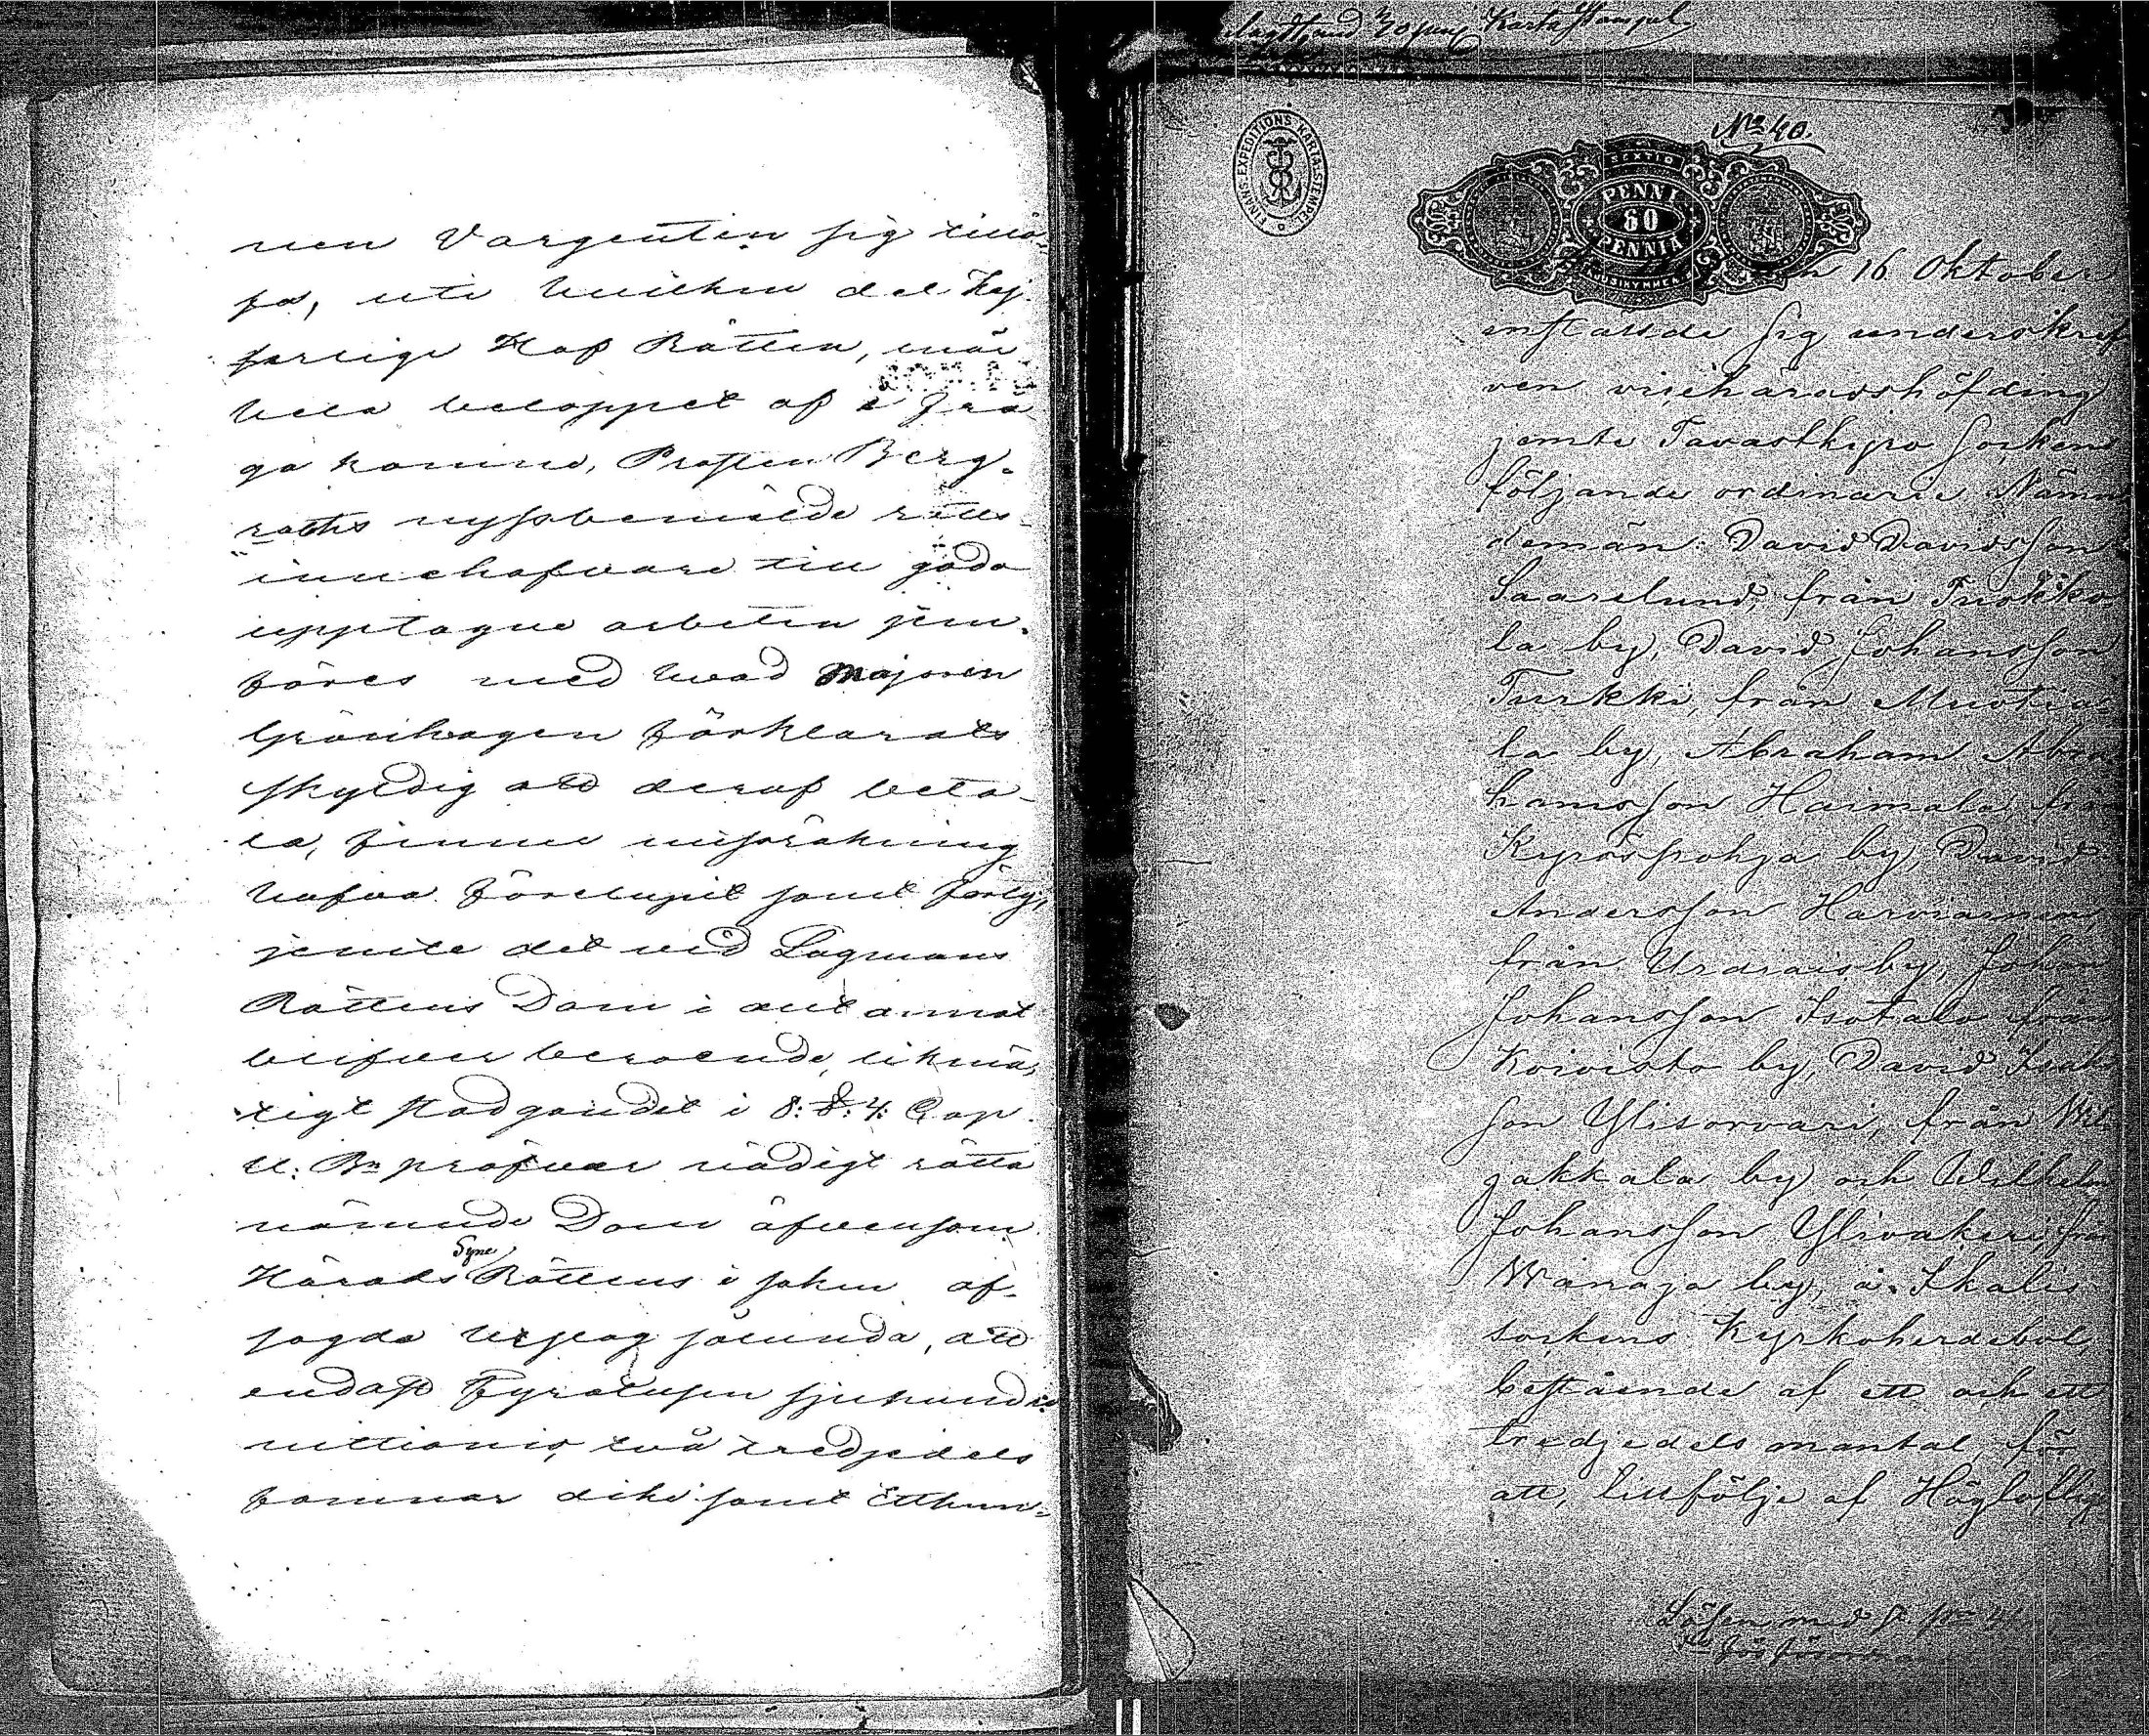 nen Vargentin sig tillö-
sa, uti hvilken del Kej-
serlige Hof Rätten, när
hela beloppet af i frå
ga komne, Prosten Berg-
roths nyssbemälde rätts
innehafvare till godo
upptagne arbeten jem-
föres med hvad Majoren
Grönhagen förklarats
skyldig att deraf beta-
la, finner missräkning
hafva förelupit samt förty,
jemte det vid Lagmans
Rättens Dom i allt annat
blifver beroende, likmä-
tigt stadgandet i 8: §. 4: Cap.
U: Bn pröfvar rådigt rätta
nämnde Dom äfvensom
Härads Syne Rättens i saken af-
sagda utslag sålunda, att
endast Fyratusen sjuhundra
nittionio, två tredjedels
famnar dike samt Etthun-
slagdt med 20 penni Karta Stämpel
No 40.
FINANS-EXPEDITIONS KARTA-STEMPEL
SEXTIO
PENNI
60
PENNIÄ
KUUSIKYMMENTÄ
den 16 Oktober
instälde sig underskref
ven vicehäradshöfding
jemte Tavastkyro socken
följande ordinarie Nämn
demän: David Davidsson
Saarelund, från Tuokko
la by, David Johansson
Turkki, från Muotia-
la by, Abraham Abra
hamsson Haimala, från
Kyröspohja by, David
Andersson Harviainen,
från Urdiais by, Johan
Johansson Isotalo från
Koivisto by, David Isaks
son Ylisorvari, från Wil
jakkala by och Wilhelm
Johansson Ylivakeri, från
Wanaja by, å Ikalis
sockens Kyrkoherdebol,
bestående af ett och ett
tredjedels mantal, för
att, till följe af Höglofliga
Lösen med